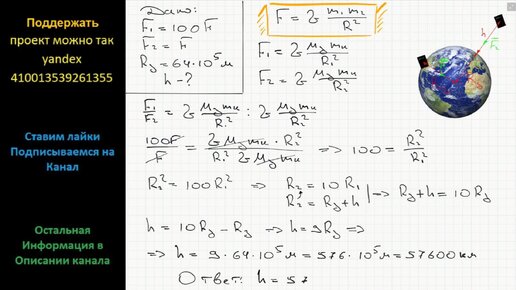 Поддержать
проект можно так
yandex
410013539261355
Ставим лайки
Подписываемся на
Канал
Остальная
Информация в
Описании канала
Дано:
F₁ = 100F
F₂ = F
Rз = 64·10⁵ м
h - ?
F = G m₁ m₂ / R²
F₁ = G Mз mк / R₁²
F₂ = G Mз mк / R₂²
h
F₁
F₁/F₂ = G Mз mк / R₁² : G Mз mк / R₂²
100F/F = G Mз mк · R₂² / R₁² G Mз mк => 100 = R₂² / R₁²
R₂² = 100R₁² => R₂ = 10R₁
R₂ = Rз + h => Rз + h = 10Rз
h = 10Rз - Rз => h = 9Rз =>
=> h = 9·64·10⁵ м = 576·10⁵ м = 57600 км
Ответ: h = 57